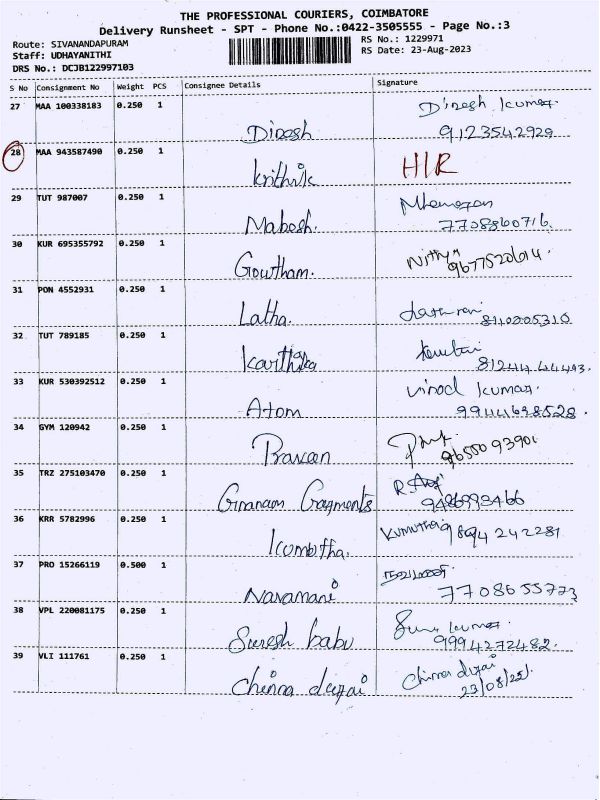 THE PROFESSIONAL COURIERS, COIMBATORE
Delivery Runsheet - SPT - Phone No.:0422-3505555 - Page No.:3
Route: SIVANANDAPURAM RS No.: 1229971
Staff: UDHAYANITHI RS Date: 23-Aug-2023
DRS No.: DCJB122997103
S No Consignment No Weight PCS Consignee Details Signature
27 MAA 100338183 0.250 1 Dinesh Dinesh kumar.
9123542929
28 MAA 943587490 0.250 1 krithik HLR
29 TUT 987007 0.250 1 Mahesh.
7708860716
30 KUR 695355792 0.250 1 Gowtham. Nithya
9677520614.
31 PON 4552931 0.250 1 Latha.
8110005310
32 TUT 789185 0.250 1 karthika
33 KUR 530392512 0.250 1 Atom vinod kumar.
9944698528.
34 GYM 120942 0.250 1 Praveen
9655093901
35 TRZ 275103470 0.250 1 Gnanam Garments
36 KRR 5782996 0.250 1 kumutha. Kumutha 9894 242281
37 PRO 15266119 0.500 1 Navamani நவமணி
7708655773
38 VPL 220081175 0.250 1 Suresh babu
9994272482.
39 VLI 111761 0.250 1 Chinna durai Chinna durai